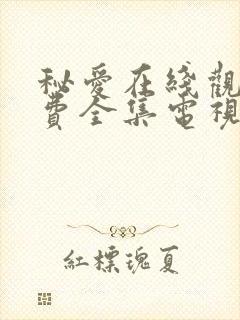 秘愛在綫觀
費全集電視
紅標瑰夏